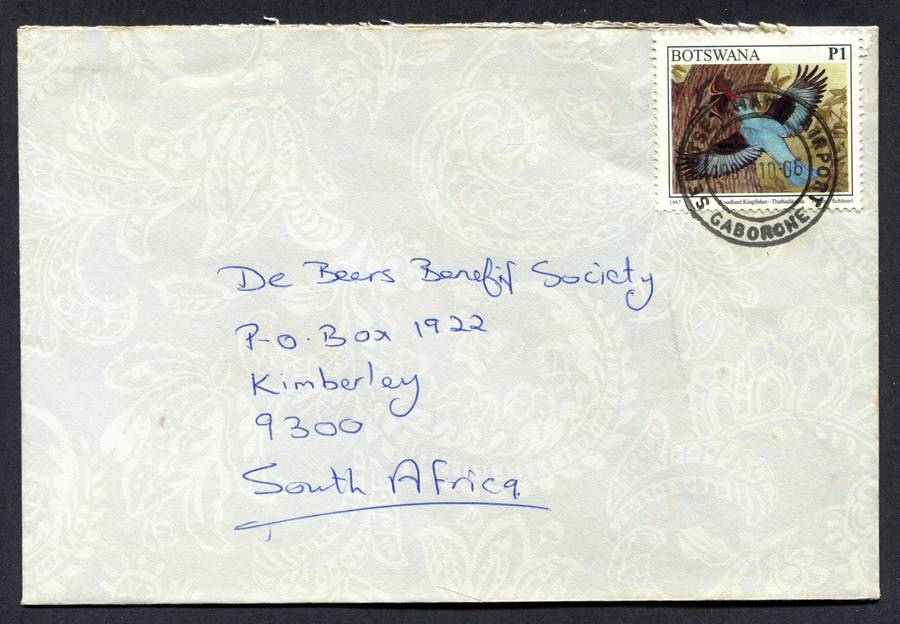 BOTSWANA P1
10-06
AIRPORT
GABORONE
1997 Woodland Kingfisher
De Beers Benefit Society
P.O. Box 1922
Kimberley
9300
South Africa